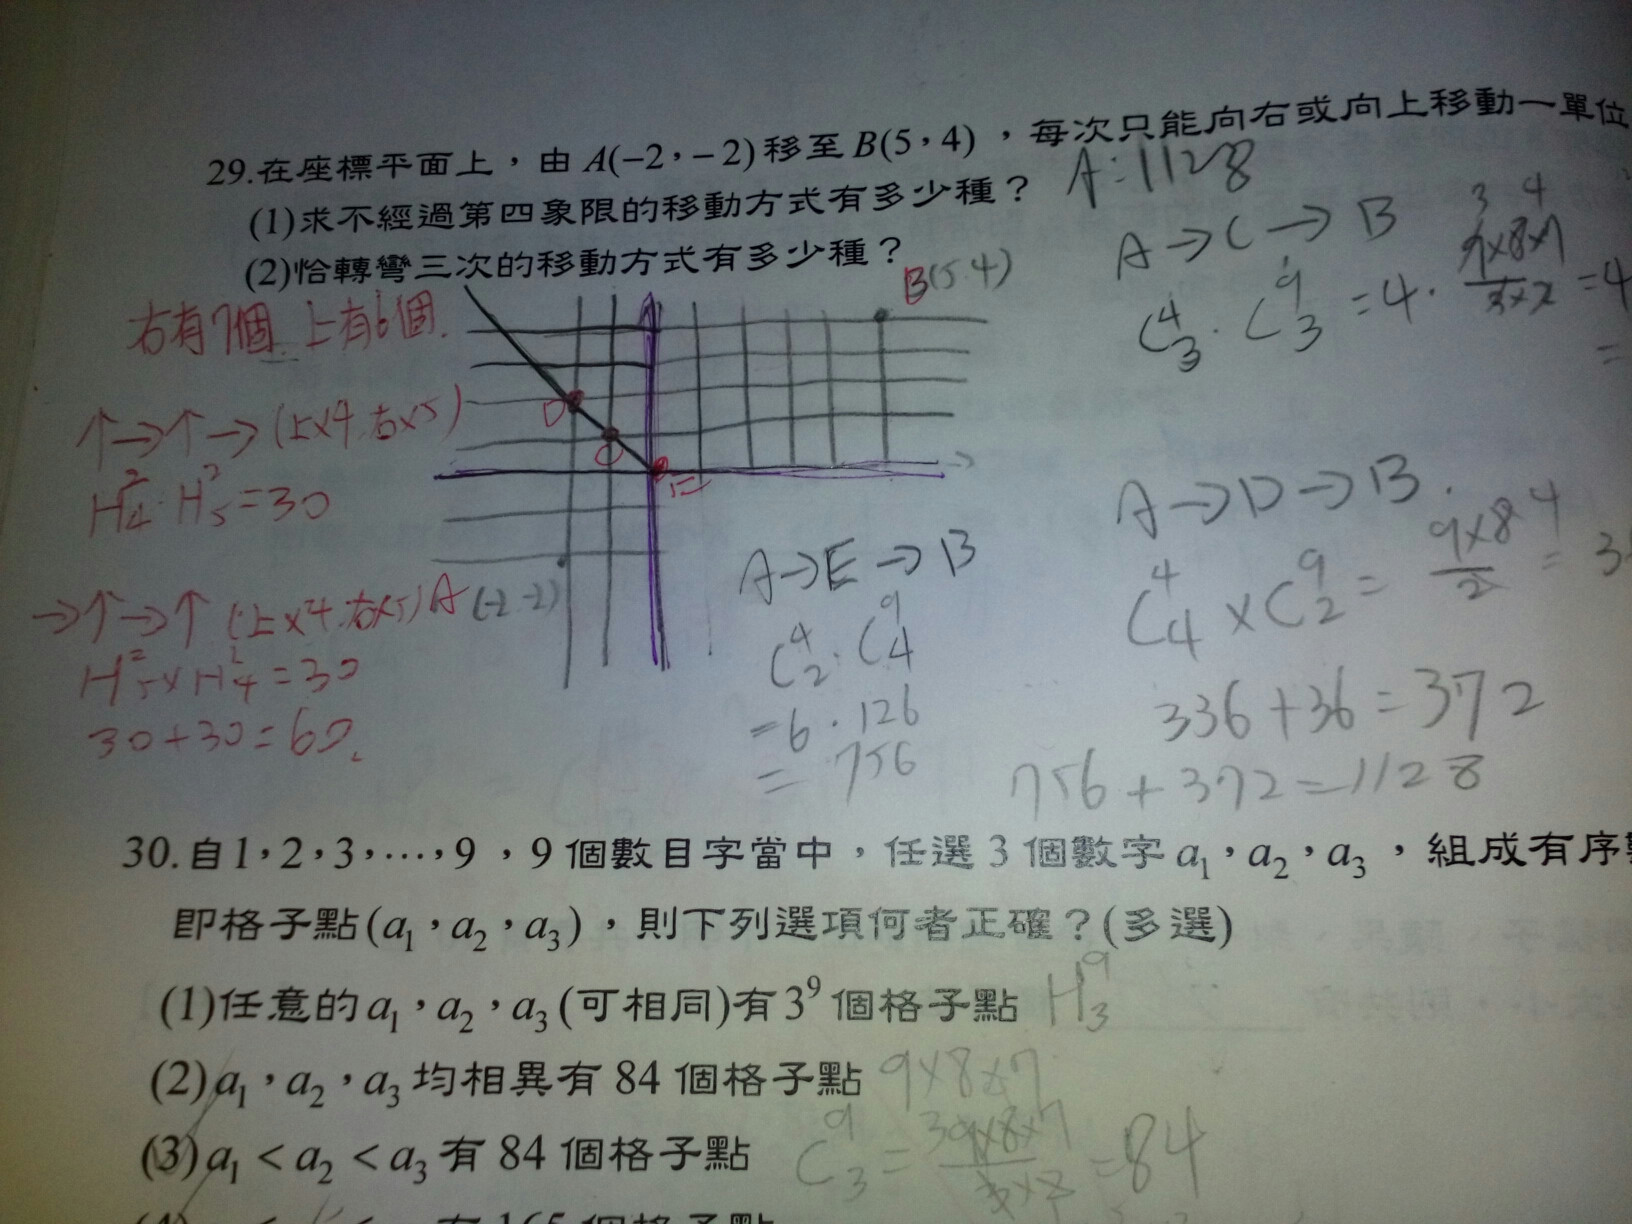 29.在座標平面上，由 A(−2，−2)移至B(5，4)，每次只能向右或向上移動一單位
(1)求不經過第四象限的移動方式有多少種？ A:1128
(2)恰轉彎三次的移動方式有多少種？
B(5.4)
右有7個 上有6個.
↑→↑→(上×4.右×5)
H²₄·H²₅=30
→↑→↑(上×4.右×5)
H²₅×H²₄=30
30+30=60.
D
C
E
A(-2 -2)
A→C→B
C⁴₃·C⁹₃=4·9×8×7/3×2=4
=
3 4
A→D→B.
C⁴₄×C⁹₂=9×8/2=3
4
336+36=372
A→E→B
C⁴₂·C⁹₄
=6·126
=756
756+372=1128
30.自1，2，3，…，9，9個數目字當中，任選3個數字a₁，a₂，a₃，組成有序
即格子點(a₁，a₂，a₃)，則下列選項何者正確？(多選)
(1)任意的a₁，a₂，a₃(可相同)有3⁹個格子點 H⁹₃
(2)a₁，a₂，a₃均相異有84個格子點 9×8×7
(3)a₁<a₂<a₃有84個格子點 C⁹₃=9×8×7/3×2=84
有165個格子點